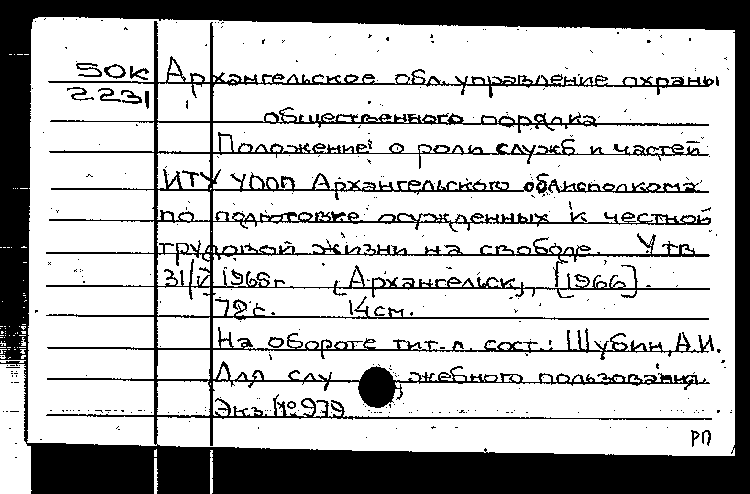 50к Архангельское обл. управление охраны
2231
общественного порядка
Положение о роли служб и частей
ИТУ УООП Архангельского облисполкома
по подготовке осужденных к честной
трудовой жизни на свободе. Утв
31/V 1965г. [Архангельск], [1966].
72с. 14см.
На обороте тит. л. сост.: Шубин, А.И.
Для служебного пользования.
Экз №979
РП